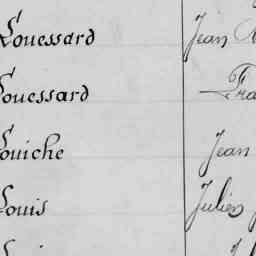 Louessard Jean
Louessard
Louiche Jean
Louis Julien